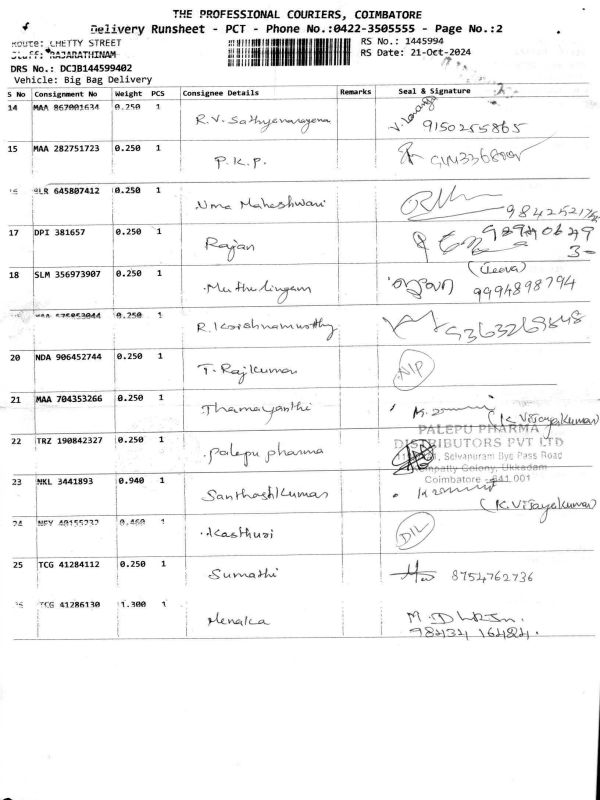 THE PROFESSIONAL COURIERS, COIMBATORE
Delivery Runsheet - PCT - Phone No.:0422-3505555 - Page No.:2
Route: CHETTY STREET
RS No.: 1445994
Staff: RAJARATHINAM
RS Date: 21-Oct-2024
DRS No.: DCJB144599402
Vehicle: Big Bag Delivery
S No Consignment No Weight PCS Consignee Details Remarks Seal & Signature
14 MAA 867001634 0.250 1 R.V. Sathyanarayana 9150255865
15 MAA 282751723 0.250 1 P.K.P.
BLR 645807412 0.250 1 Uma Maheshwari
17 DPI 381657 0.250 1 Rajan
18 SLM 356973907 0.250 1 Muthulingam (Jeeva)
9994898794
0.250 1 R. Krishnamurthy
20 NDA 906452744 0.250 1 T. Rajkumar N/P
21 MAA 704353266 0.250 1 Thamayanthi (K. Vijayakumar)
PALEPU PHARMA
22 TRZ 190842327 0.250 1 Palepu pharma DISTRIBUTORS PVT LTD
Selvanuram Bye Pass Road
Colony, Ukkadam
Coimbatore - 641 001
23 NKL 3441893 0.940 1 Santhosh Kumar
(K. Vijayakumar)
24 NEY 40155232 0.460 1 Kasthuri D/L
25 TCG 41284112 0.250 1 Sumathi 8754762736
TCG 41286130 1.300 1 Menaka
98434 16484.